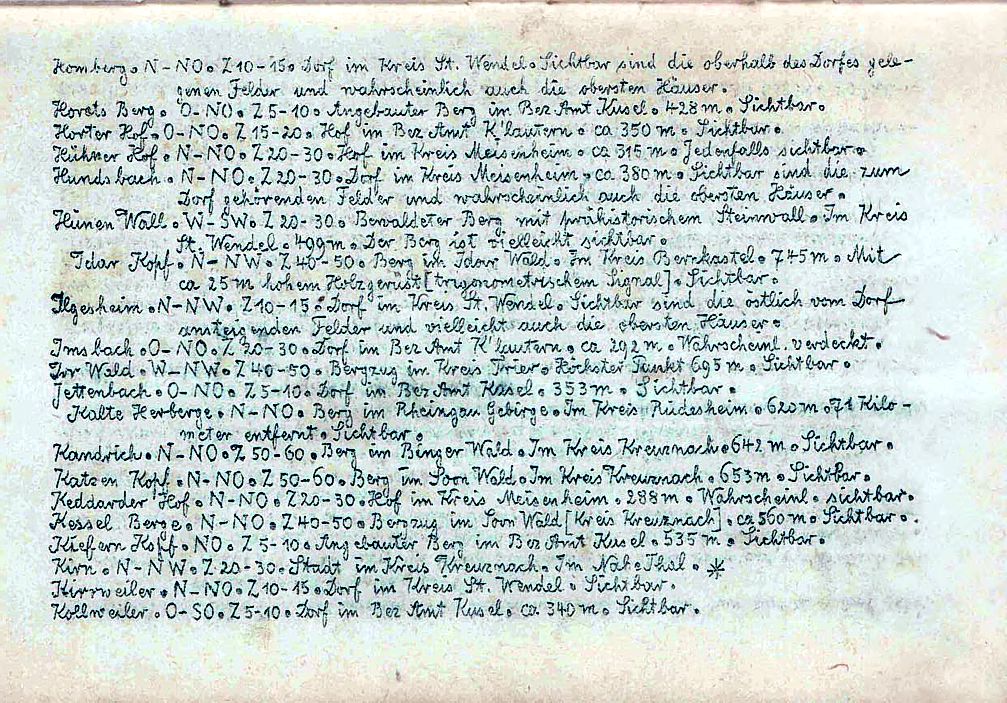 Homberg. N-NO. Z 10-15. Dorf im Kreis St. Wendel. Sichtbar sind die oberhalb des Dorfes gele-
genen Felder und wahrscheinlich auch die obersten Häuser.
Horets Berg. O-NO. Z 5-10. Angebauter Berg im Bez Amt Kusel. 428 m. Sichtbar.
Horter Hof. O-NO. Z 15-20. Hof im Bez Amt K'lautern. ca 350 m. Sichtbar.
Hühner Hof. N-NO. Z 20-30. Hof im Kreis Meisenheim. ca 315 m. Jedenfalls sichtbar.
Hundsbach. N-NO. Z 20-30. Dorf im Kreis Meisenheim. ca 380 m. Sichtbar sind die zum
Dorf gehörenden Felder und wahrscheinlich auch die obersten Häuser.
Hünen Wall. W-SW. Z 20-30. Bewaldeter Berg mit prähistorischem Steinwall. Im Kreis
St. Wendel. 499 m. Der Berg ist vielleicht sichtbar.
Idar Kopf. N-NW. Z 40-50. Berg im Idar Wald. Im Kreis Bernkastel. 745 m. Mit
ca 25 m hohem Holzgerüst [trigonometrischem Signal]. Sichtbar.
Ilgesheim. N-NW. Z 10-15. Dorf im Kreis St. Wendel. Sichtbar sind die östlich vom Dorf
ansteigenden Felder und vielleicht auch die obersten Häuser.
Imsbach. O-NO. Z 20-30. Dorf im Bez Amt K'lautern. ca 292 m. Wahrscheinl. verdeckt.
Irr Wald. W-NW. Z 40-50. Bergzug im Kreis Trier. Höchster Punkt 695 m. Sichtbar.
Jettenbach. O-NO. Z 5-10. Dorf im Bez Amt Kusel. 353 m. Sichtbar.
Kalte Herberge. N-NO. Berg im Rheingau Gebirge. Im Kreis Rüdesheim. 620 m. 71 Kilo-
meter entfernt. Sichtbar.
Kandrich. N-NO. Z 50-60. Berg im Binger Wald. Im Kreis Kreuznach. 642 m. Sichtbar.
Katzen Kopf. N-NO. Z 50-60. Berg im Soon Wald. Im Kreis Kreuznach. 653 m. Sichtbar.
Keddarder Hof. N-NO. Z 20-30. Hof im Kreis Meisenheim. 288 m. Wahrscheinl. sichtbar.
Kessel Berge. N-NO. Z 40-50. Bergzug im Soon Wald [Kreis Kreuznach]. ca 560 m. Sichtbar.
Kiefern Kopf. NO. Z 5-10. Angebauter Berg im Bez Amt Kusel. 535 m. Sichtbar.
Kirn. N-NW. Z 20-30. Stadt im Kreis Kreuznach. Im Nahe Thal. *
Kirrweiler. N-NO. Z 10-15. Dorf im Kreis St. Wendel. Sichtbar.
Kollweiler. O-SO. Z 5-10. Dorf im Bez Amt Kusel. ca 340 m. Sichtbar.